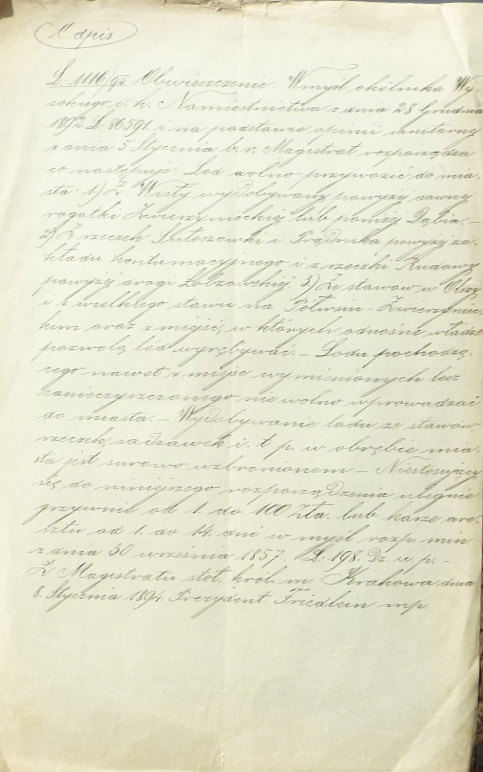 Odpis
L. 1116/94 Obwieszczenie W myśl okólnika Wy-
sokiego c. k. Namiestnictwa z dnia 28 Grudnia
1892 L. 86591 i na podstawie opinii sanitarnej
z dnia 5 Stycznia b. r. Magistrat rozporządza
co następuje. Lód wolno przywozić do mia-
sta: 1) Z Wisły wydobywany powyżej dawnej
rogatki Zwierzynieckiej lub poniżej Dąbia. –
2) Z rzeczek i Prądnika powyżej za-
kładu kontumacyjnego i z rzeczki Rudawy
powyżej drogi Łobzowskiej. 3) Ze stawów w
i z wielkiego stawu na Półwsiu – Zwierzyniec-
kim oraz z miejsc, w których odnośne władze
pozwolą lód wyrębywać. – Lodu pochodzą-
cego nawet z miejsc wymienionych lecz
zanieczyszczonego nie wolno wprowadzać
do miasta. – Wydobywanie lodu ze stawów,
rzeczek, sadzawek i. t. p. w obrębie mia-
sta jest surowo wzbronionem – Niestosujący
się do niniejszego rozporządzenia ulegnie
grzywnie od 1. do 100 Zła. lub karze are-
sztu od 1. do 14. dni w myśl rozp. min.
z dnia 30 września 1857. L. 198. Dz. u. p. –
Z Magistratu stoł. król. m. Krakowa dnia
8. Stycznia 1894. Prezydent Friedlein mp.